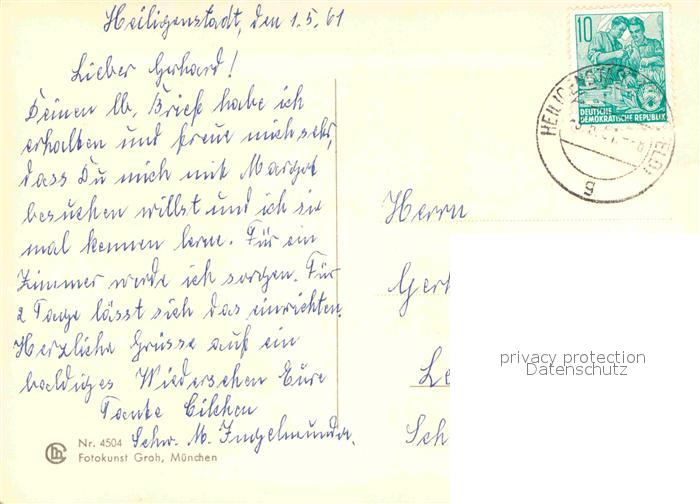 Heiligenstadt, den 1.5.61
Lieber Gerhard!
Deinen lb. Brief habe ich
erhalten und freue mich sehr,
dass Du mich mit Margot
besuchen willst und ich sie
mal kennen lerne. Für ein
Zimmer werde ich sorgen. Für
2 Tage lässt sich das einrichten.
Herzliche Grüsse auf ein
baldiges Wiedersehen Eure
Tante
Schw. M.
Nr. 4504
Fotokunst Groh, München
10
DEUTSCHE
DEMOKRATISCHE REPUBLIK
HEILIGENSTADT
g
Herrn
privacy protection
Datenschutz